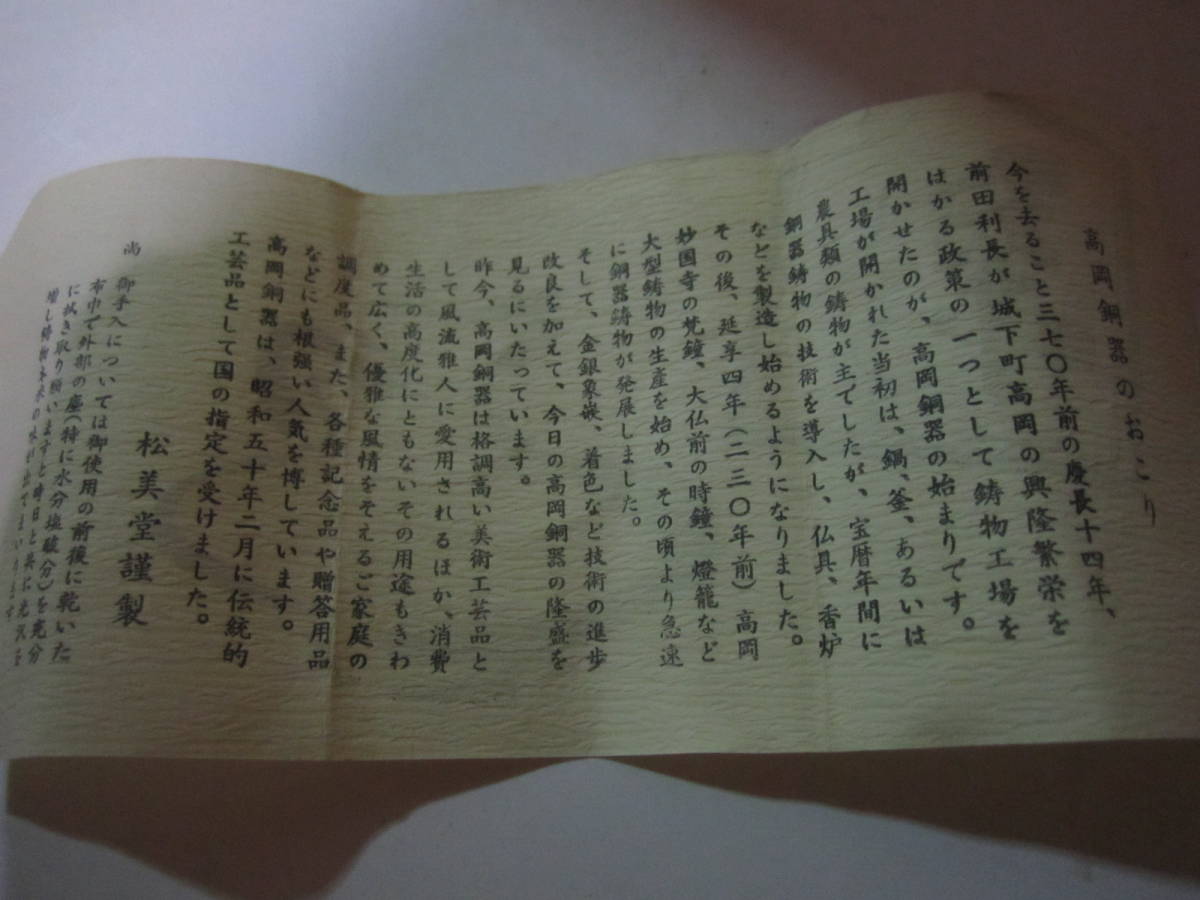 高岡銅器のおこり
今を去ること三七〇年前の慶長十四年、
前田利長が城下町高岡の興隆繁栄を
はかる政策の一つとして鋳物工場を
開かせたのが、高岡銅器の始まりです。
工場が開かれた当初は、鍋、釜、あるいは
農具類の鋳物が主でしたが、宝暦年間に
銅器鋳物の技術を導入し、仏具、香炉
などを製造し始めるようになりました。
その後、延享四年(二三〇年前)高岡
妙国寺の梵鐘、大仏前の時鐘、燈籠など
大型鋳物の生産を始め、その頃より急速
に銅器鋳物が発展しました。
そして、金銀象嵌、着色など技術の進歩
改良を加えて、今日の高岡銅器の隆盛を
見るにいたっています。
昨今、高岡銅器は格調高い美術工芸品と
して風流雅人に愛用されるほか、消費
生活の高度化にともないその用途もきわ
めて広く、優雅な風情をそえるご家庭の
調度品、また、各種記念品や贈答用品
などにも根強い人気を博しています。
高岡銅器は、昭和五十年二月に伝統的
工芸品として国の指定を受けました。
松美堂謹製
尚 御手入については御使用の前後に乾いた
布巾で外部の座(特に水分塩酸分)を充分
に拭き取り願いますと時日と共に光沢を
増し鋳物本来の味が出てまいります